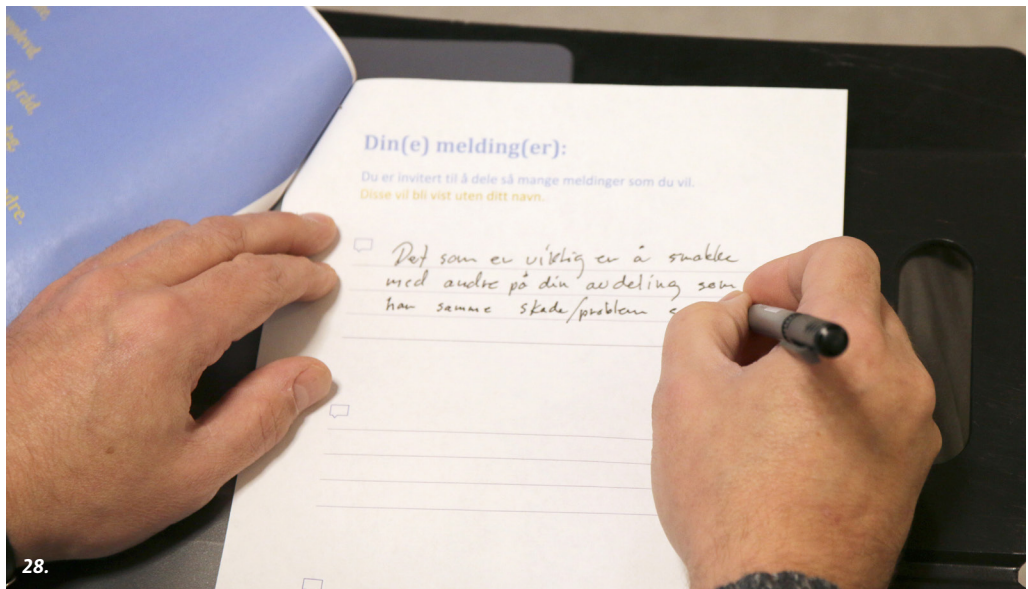 Din(e) melding(er):
Du er invitert til å dele så mange meldinger som du vil.
Disse vil bli vist uten ditt navn.
Det som er viktig er å snakke
med andre på din avdeling som
har samme skade/problem
28.